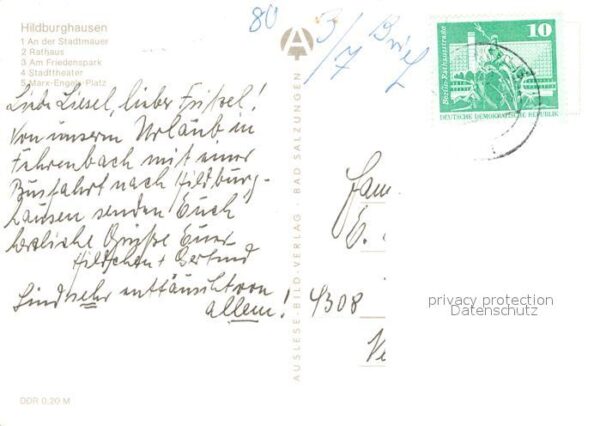 Hildburghausen
1 An der Stadtmauer
2 Rathaus
3 Am Friedenspark
4 Stadttheater
5 Marx-Engels-Platz
Liebe Liesel, lieber Frissel!
Von unserm Urlaub in
Fehrenbach mit einer
Busfahrt nach Hildburg-
hausen senden Euch
herzliche Grüße Eure
Hildchen + Gertrud
Sind sehr enttäuscht von
allem!
DDR 0,20 M
AUSLESE-BILD-VERLAG · BAD SALZUNGEN
80
3/7 Brief
10
Berlin-Rathausstraße
DEUTSCHE DEMOKRATISCHE REPUBLIK
Fam.
E.
4308
privacy protection
Datenschutz